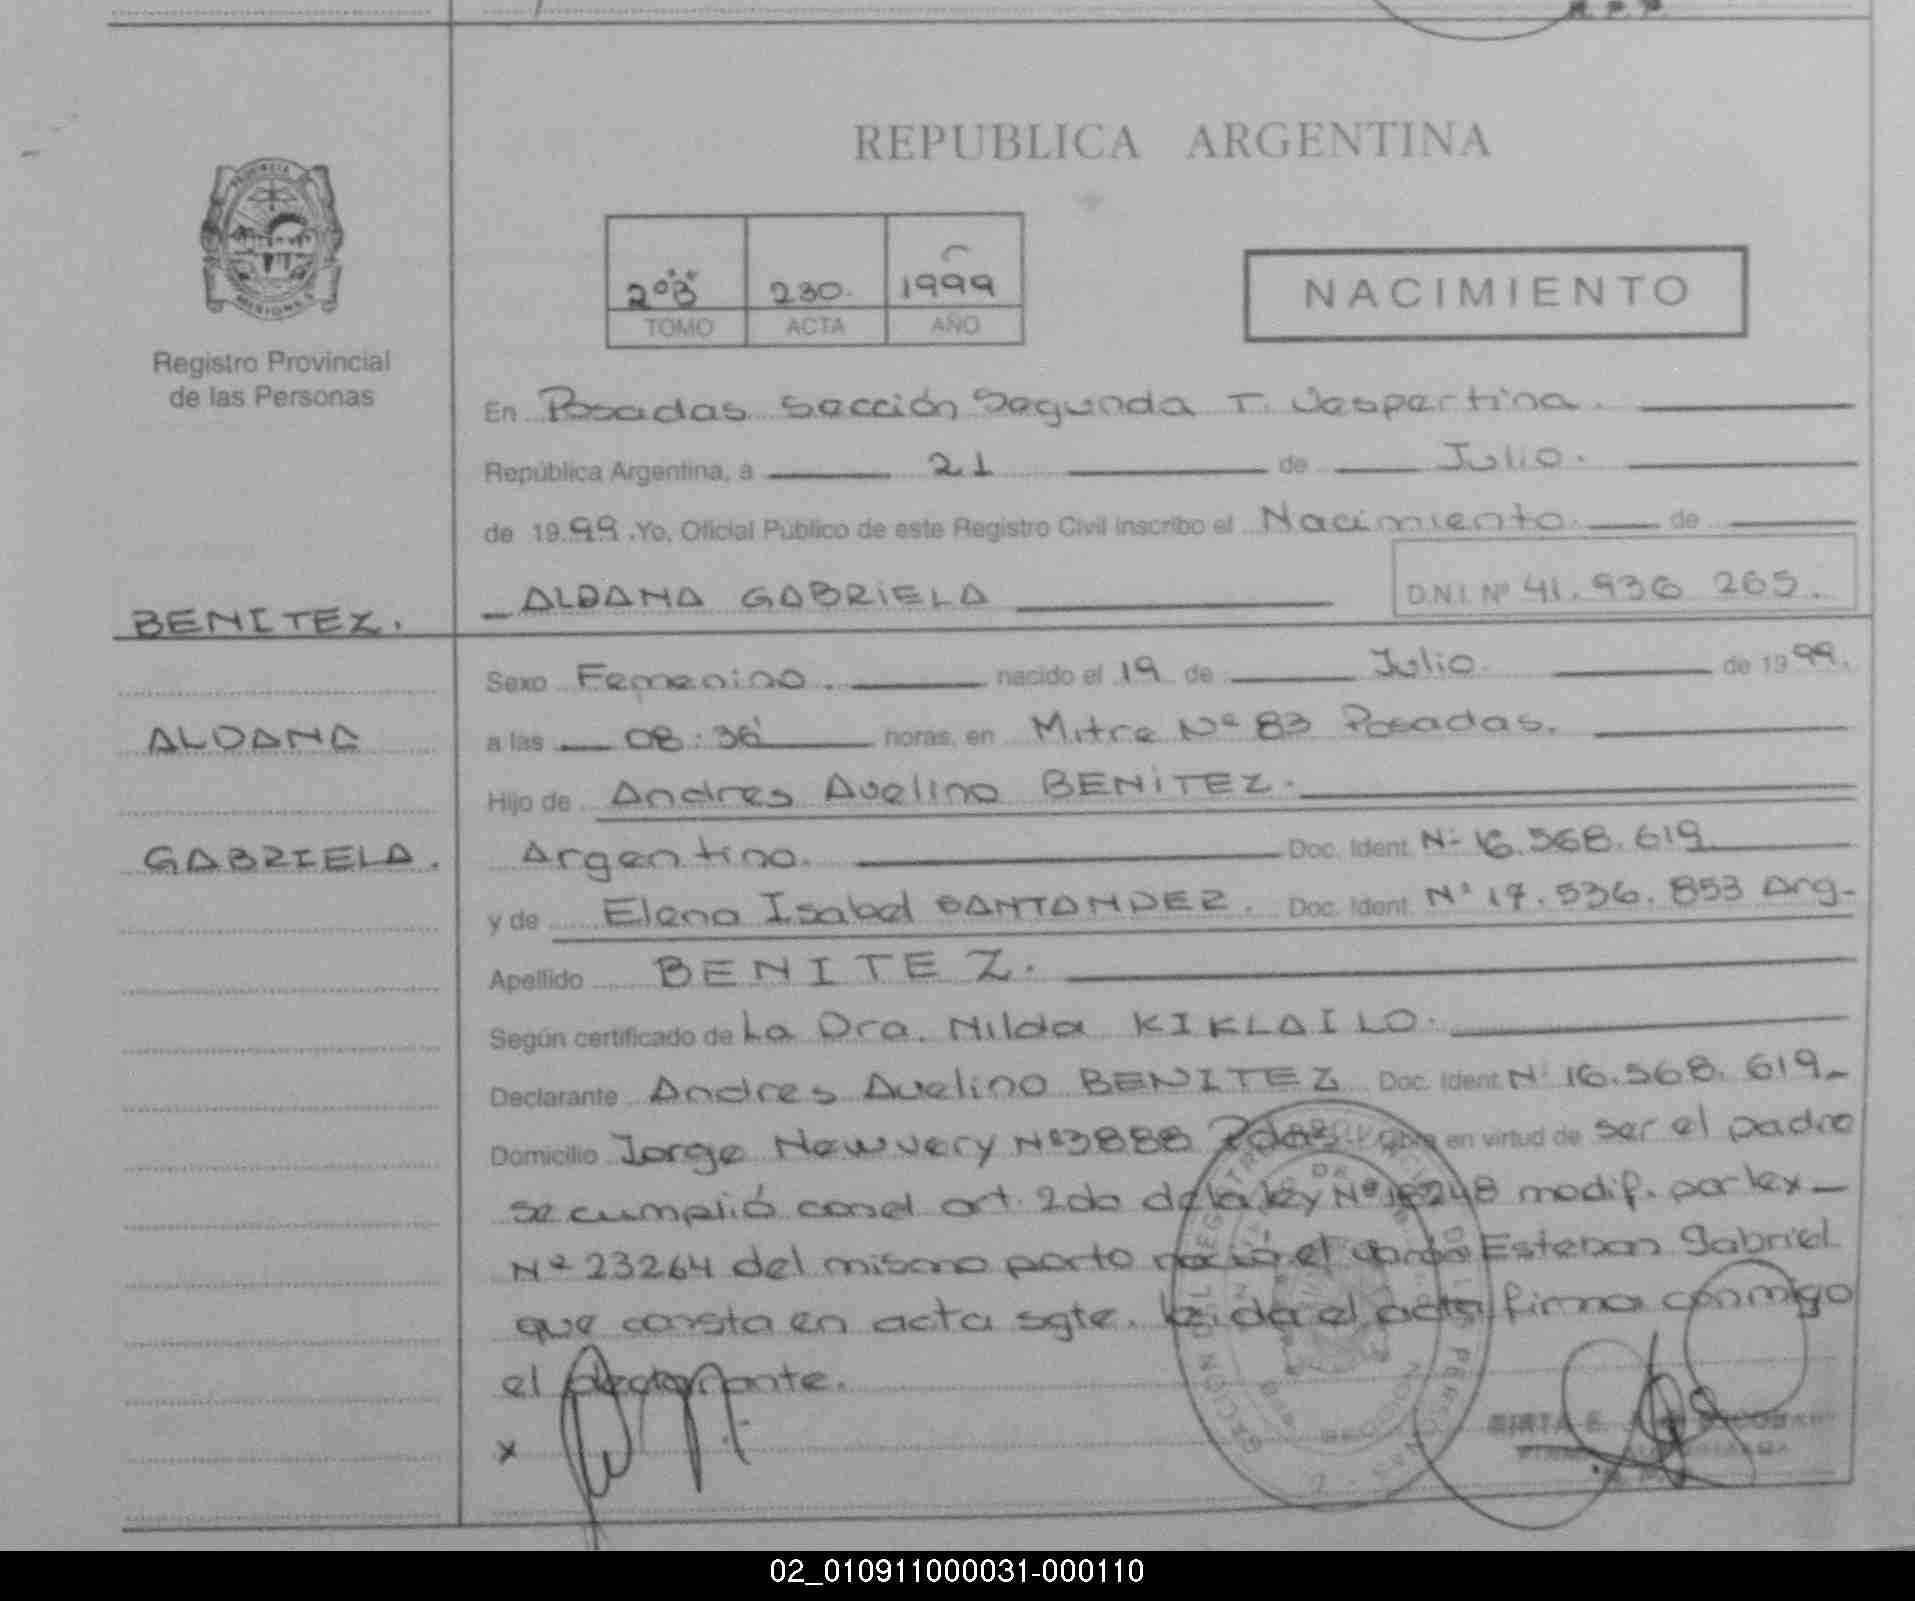 REPUBLICA ARGENTINA
PROVINCIA
MISIONES
Registro Provincial
de las Personas
2º B 230. 1999
TOMO ACTA AÑO
NACIMIENTO
En Posadas Sección Segunda T. Vespertina.
República Argentina, a 21 de Julio.
de 1999. Yo, Oficial Público de este Registro Civil inscribo el Nacimiento. de
ALDANA GABRiELA D.N.I. Nº 41.936 265.
BENITEZ.
Sexo Femenino. nacido el 19 de Julio. de 1999.
ALDANA
a las 08:36 horas, en Mitre Nº 83 Posadas.
Hijo de Andres Avelino BENiTEZ.
GABRIELA.
Argentino. Doc. Ident. Nº 16.568.619
y de Elena Isabel SANTANDER. Doc. Ident. Nº 17.536.853 Arg-
Apellido BENITEZ.
Según certificado de La Dra. Nilda KIKLAILO.
Declarante Andres Avelino BENITEZ Doc. Ident. Nº 16.568.619_
Domicilio Jorge Newvery Nº3888 Pdas. Obra en virtud de ser el padre
se cumplió con el art. 2do de la ley Nº 18248 modif. por ley_
Nº 23264 del mismo parto nació el varón Esteban Gabriel
que consta en acta sgte. Leida el acta firma conmigo
el declarante.
x
02_010911000031-000110